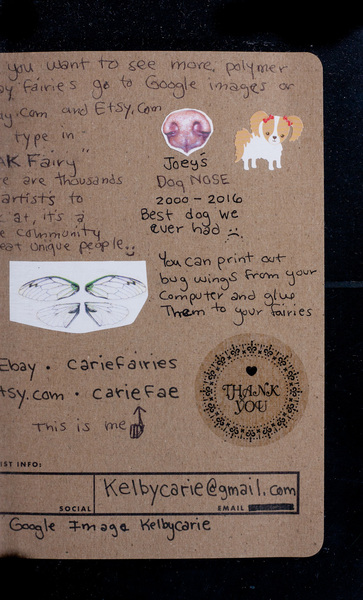 you want to see more, polymer
ay fairies go to Google images or
ay.com and Etsy.com
type in
AK Fairy"
re are thousands
artists to
k at, it's a
e community
eat unique people
Joey's
Dog NOSE
2000 - 2016
Best dog we
ever had
You can print out
bug wings from your
Computer and glue
Them to your fairies
Ebay • cariefairies
tsy.com • carieFae
This is me
THANK
YOU
IST INFO:
Kelbycarie@gmail.com
SOCIAL
EMAIL
Google Image Kelbycarie